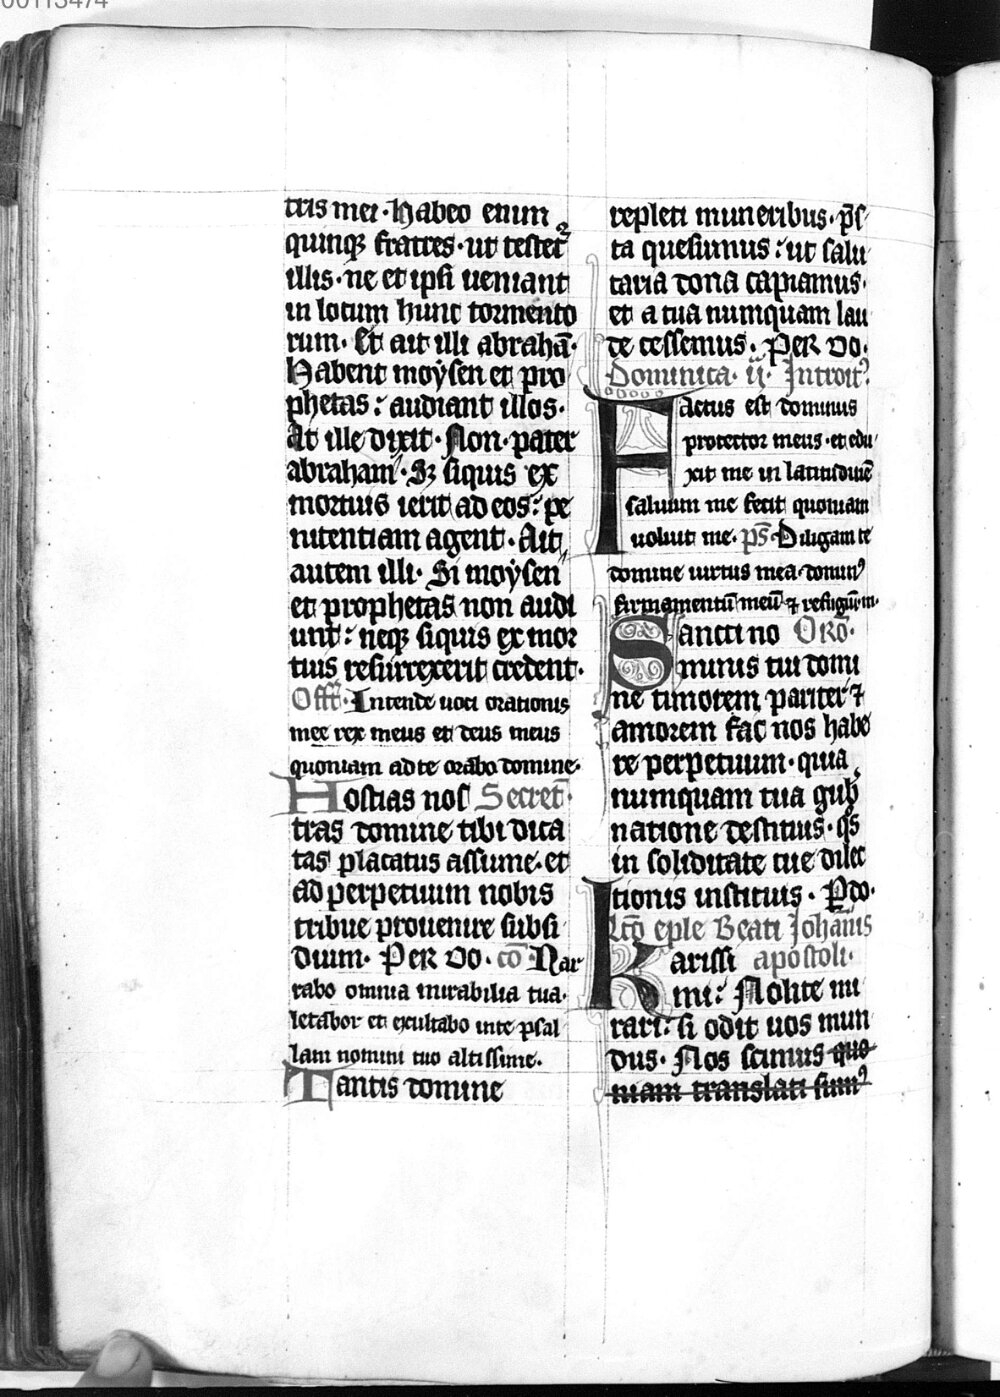 00113474
tris mei · Habeo enim
quinqꝫ fratres · ut testet᷑
illis · ne et ipsi ueniant
in locum hunc tormento
rum · Et ait illi abrahā ·
Habent moÿsen et pro
phetas : audiant illos ·
At ille dixit · Non · pater
abraham · Sꝫ siquis ex
mortuis ierit ad eos : pe
nitentiam agent · Ait
autem illi · Si moÿsen
et prophetas non audi
unt : neqꝫ siquis ex mor
tuis resurrexerit credent ·
Offr̄ · Intende uoci orationis
mee rex meus et deus meus
quoniam ad te orabo domine ·
Hostias nos Secret̄ ·
tras domine tibi dica
tas placatus assume · et
ad perpetuum nobis
tribue prouenire subsi
dium · Per do · cō Nar
rabo omnia mirabilia tua ·
letabor et exultabo in te psal
lam nomini tuo altissime ·
Tantis domine
repleti muneribus · p̄s
ta quesumus : ut salu
taria dona capiamus ·
et a tua numquam lau
de cessemus · Per do ·
Dominica · ij · Introit⁹
Factus est dominus
protector meus · et edu
xit me in latitudinē
saluum me fecit quoniam
uoluit me · p̄s · Diligam te
domine uirtus mea · domin⁹
firmamentū meū ⁊ refugiū m ·
Sancti no Orō ·
minis tui domi
ne timorem pariter ⁊
amorem fac nos habe
re perpetuum · quia
numquam tua gub̄
natione destituis · q̄s
in soliditate tue dilec
tionis instituis · ꝑ do ·
Lcō eple Beati Johānis
Karissi apostoli ·
mi : Nolite mi
rari : si odit uos mun
dus · Nos scimus quo
niam translati sum⁹